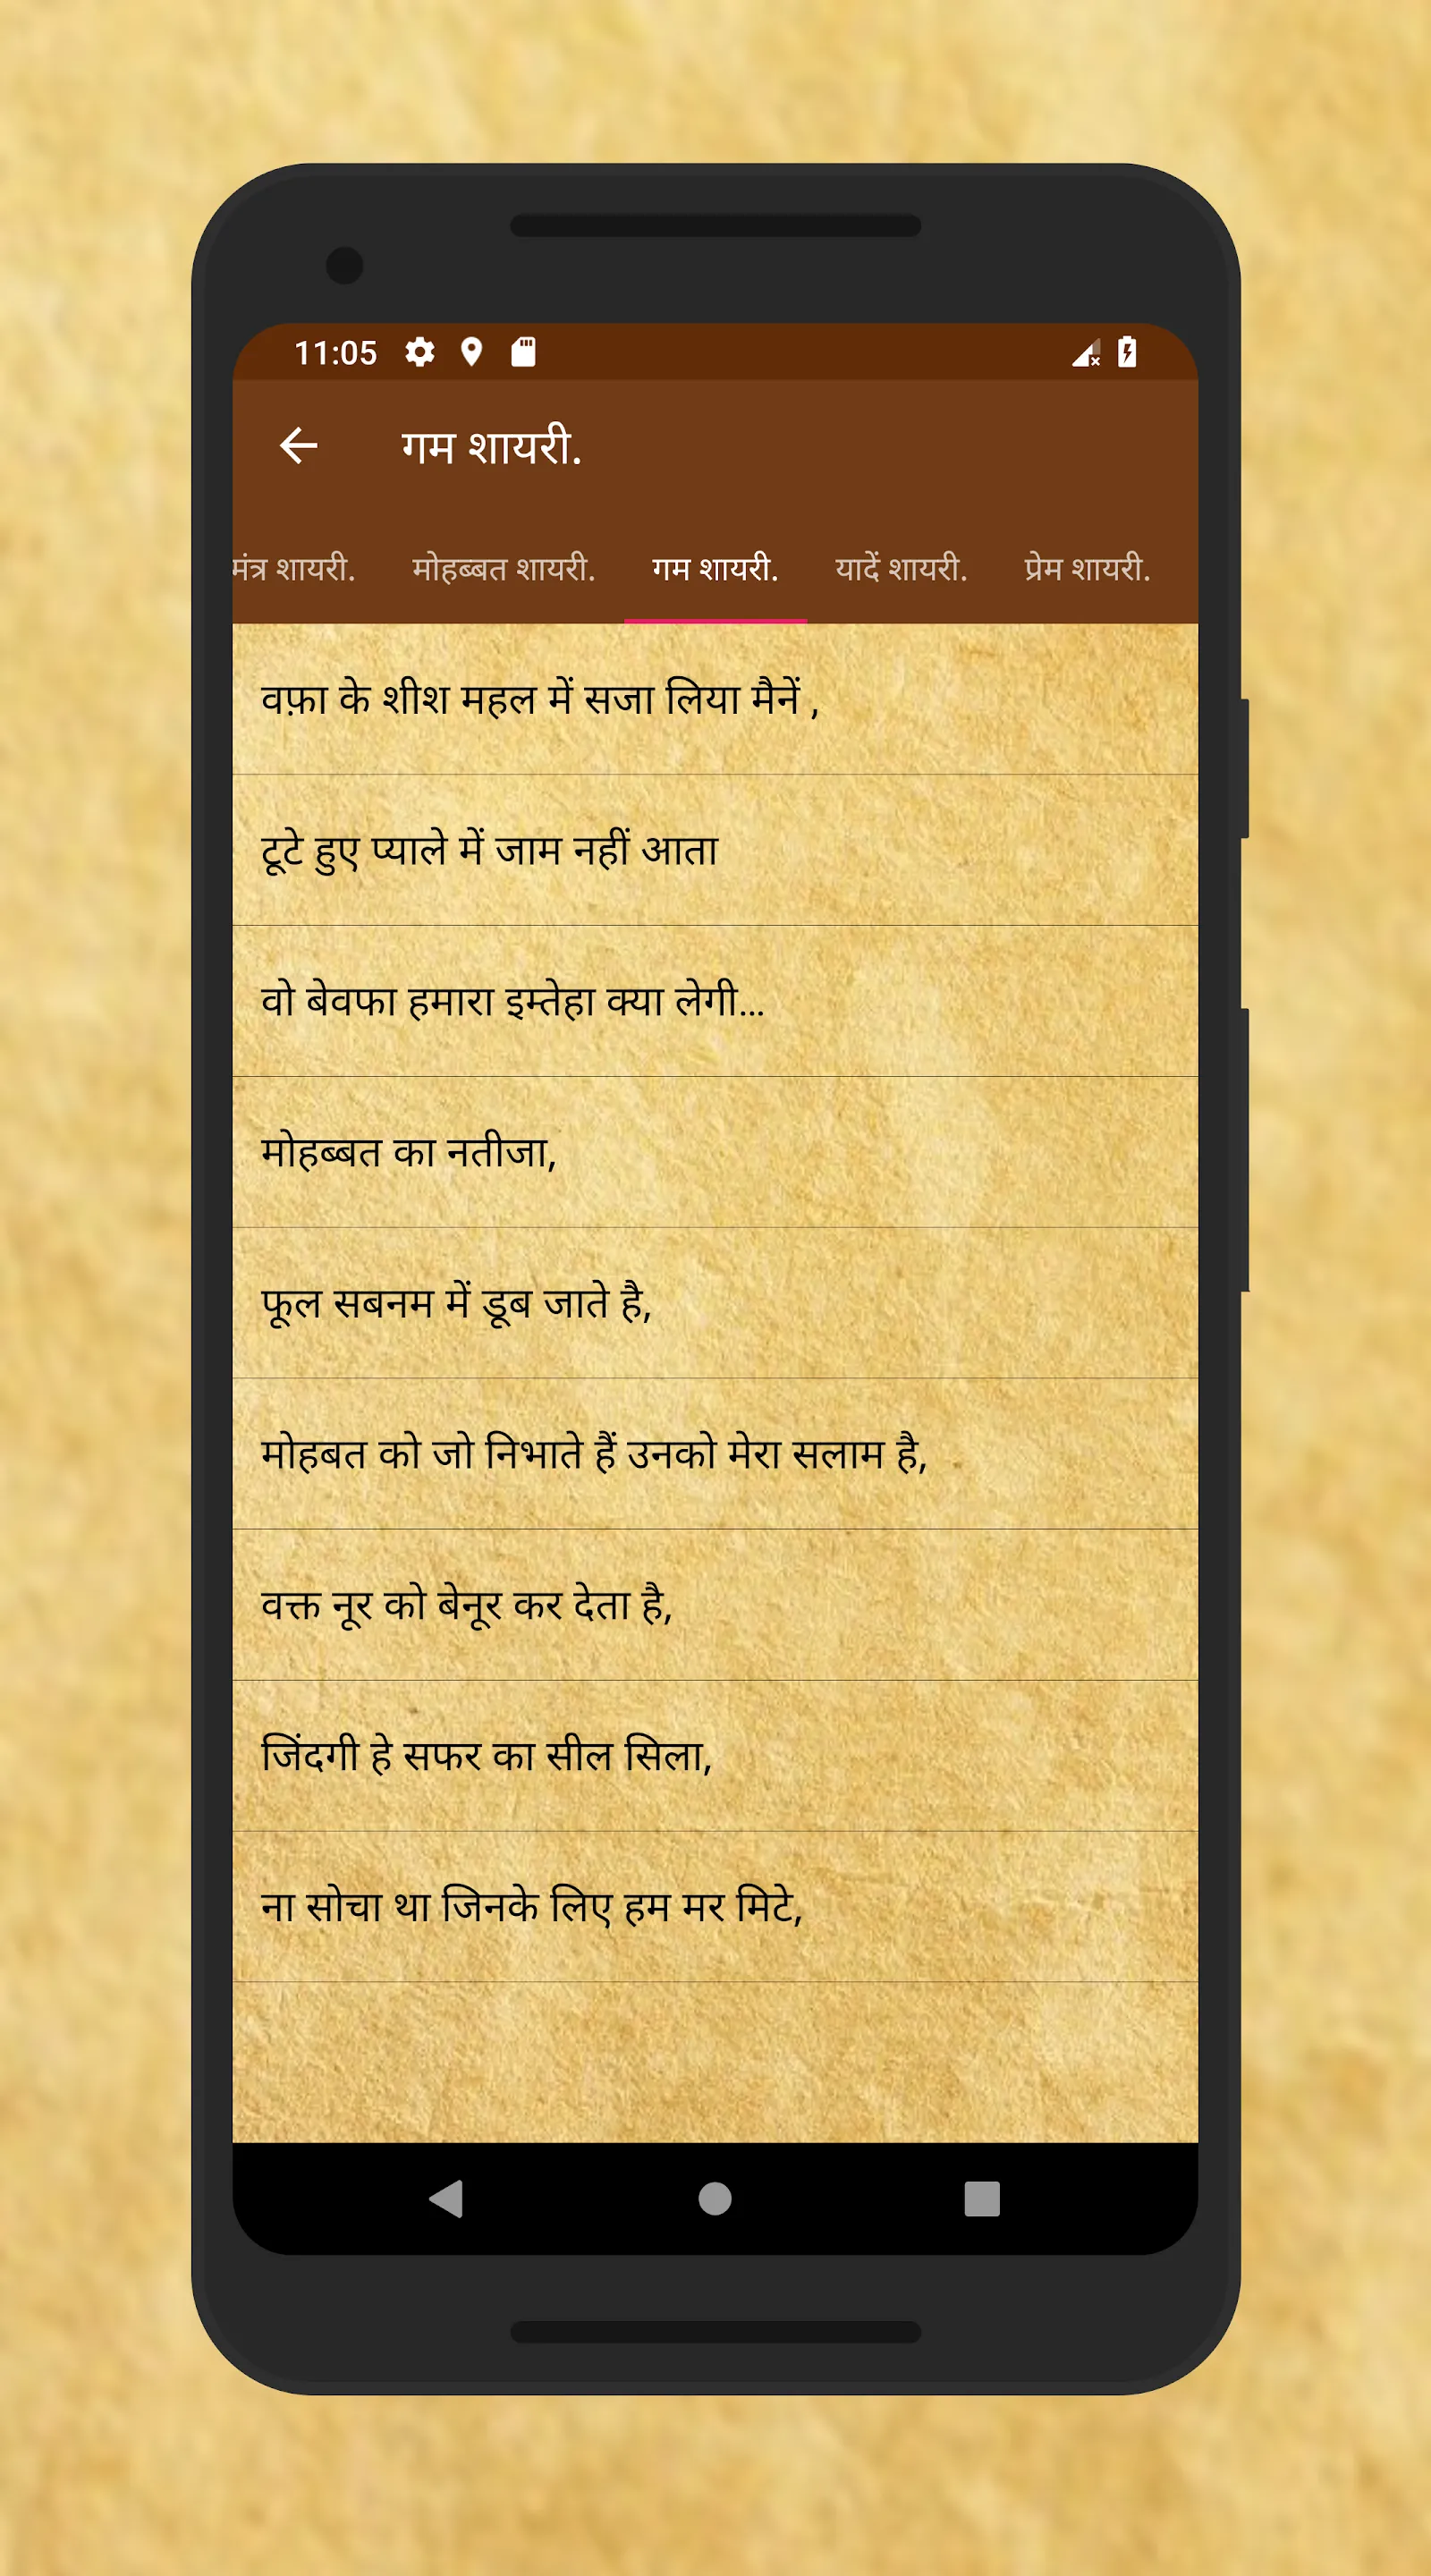 11:05
गम शायरी.
मंत्र शायरी. मोहब्बत शायरी. गम शायरी. यादें शायरी. प्रेम शायरी.
वफ़ा के शीश महल में सजा लिया मैनें ,
टूटे हुए प्याले में जाम नहीं आता
वो बेवफा हमारा इम्तेहा क्या लेगी...
मोहब्बत का नतीजा,
फूल सबनम में डूब जाते है,
मोहबत को जो निभाते हैं उनको मेरा सलाम है,
वक्त नूर को बेनूर कर देता है,
जिंदगी हे सफर का सील सिला,
ना सोचा था जिनके लिए हम मर मिटे,